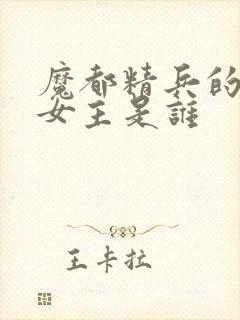 魔都精兵的
女主是誰
王卡拉